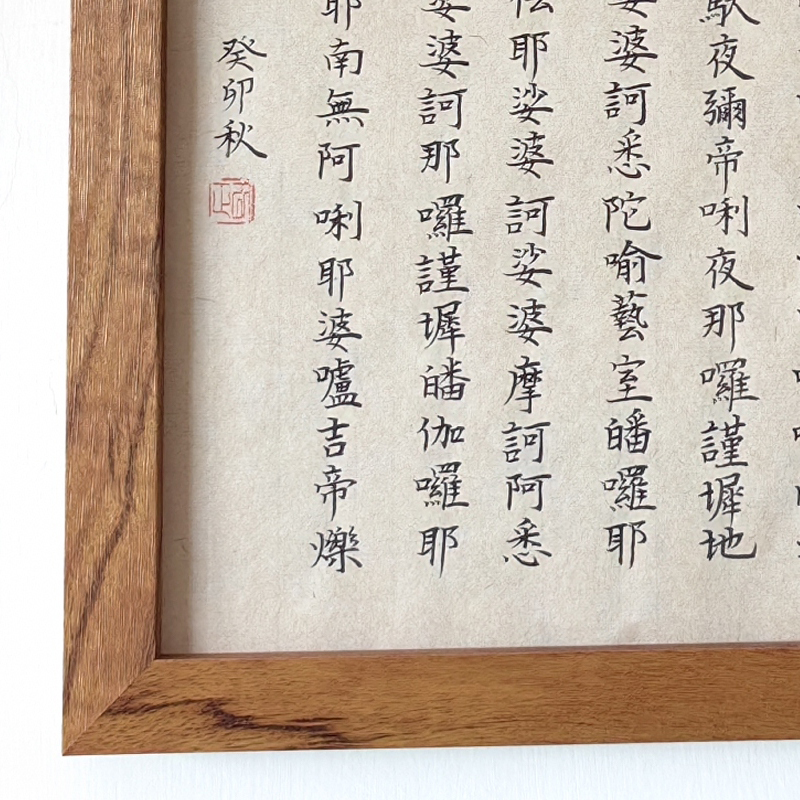 馱夜彌帝唎夜那囉謹墀地
娑婆訶悉陀喻藝室皤囉耶
耶娑婆訶娑婆摩訶阿悉
娑婆訶那囉謹墀皤伽囉耶
耶南無阿唎耶婆嚧吉帝爍
癸卯秋